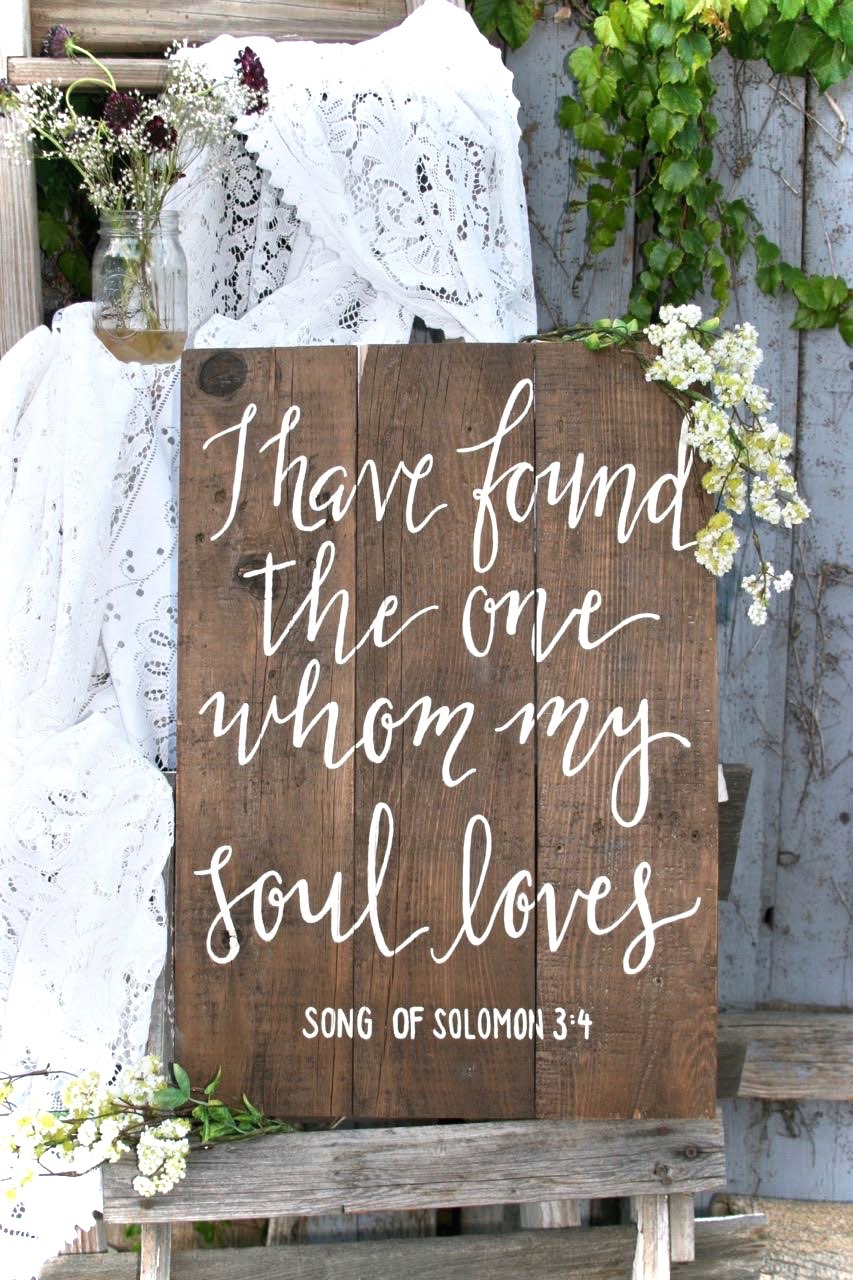 I have found
the one
whom my
soul loves
SONG OF SOLOMON 3:4